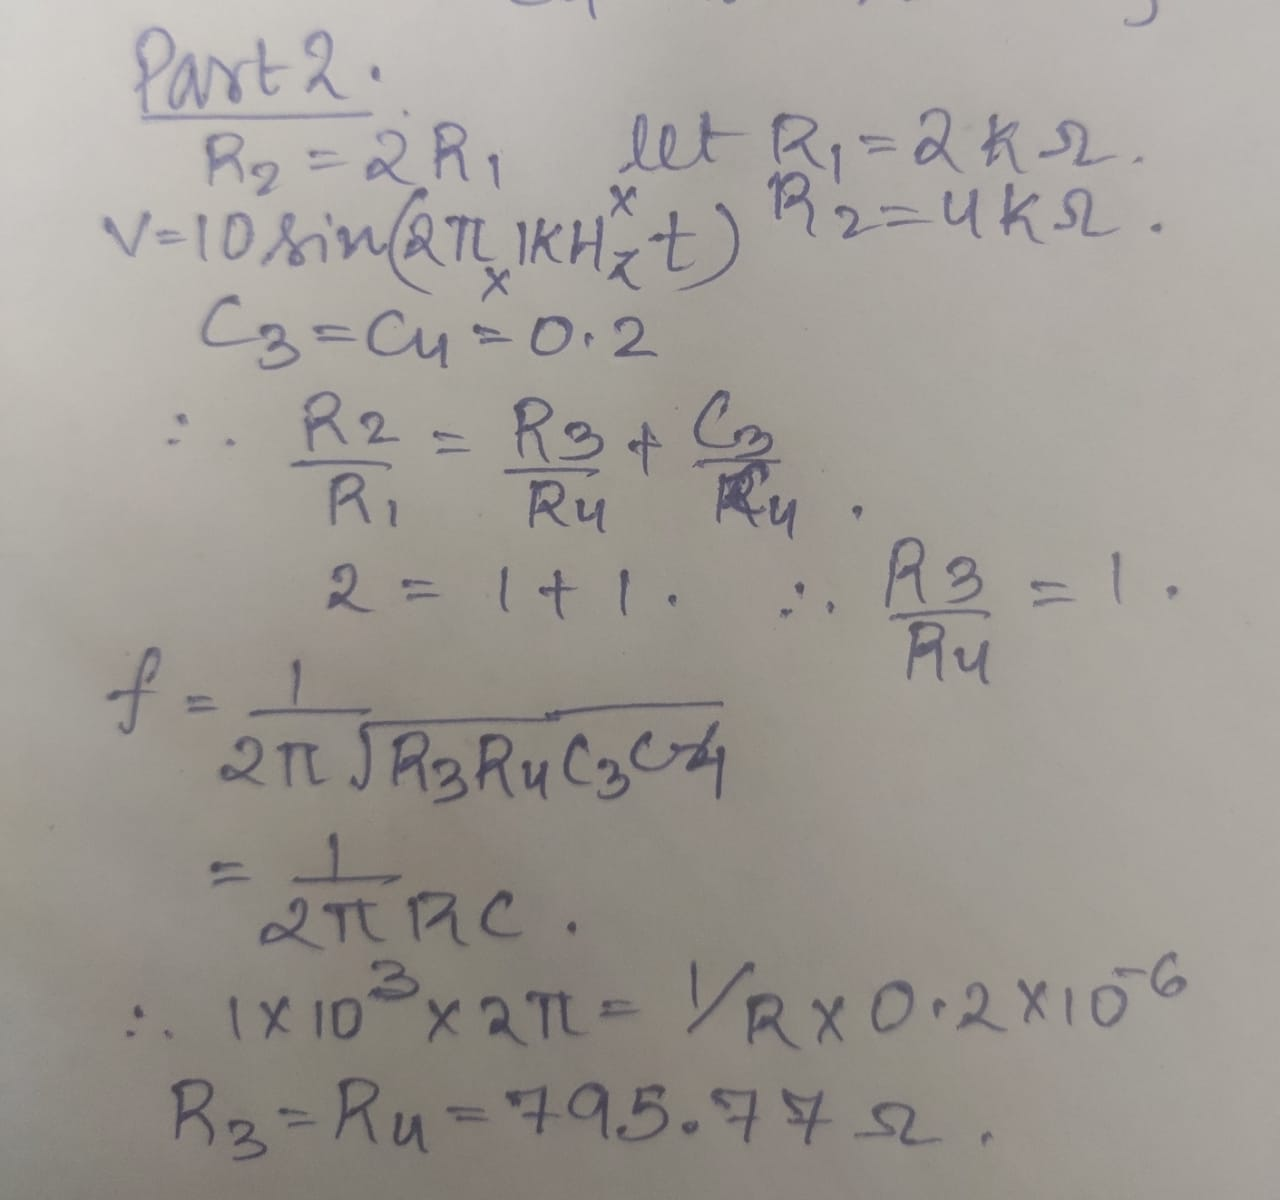 Part 2.
R2 = 2R1 let R1 = 2KΩ.
V=10 sin(2π x 1KHz x t) R2 = 4KΩ.
C3 = C4 = 0.2
∴ R2/R1 = R3/R4 + C3/C4.
2 = 1 + 1. ∴ R3/R4 = 1.
f = 1/2π√R3R4C3C4
= 1/2πRC.
∴ 1×10³×2π = 1/R×0.2×10⁻⁶
R3 = R4 = 795.77Ω.